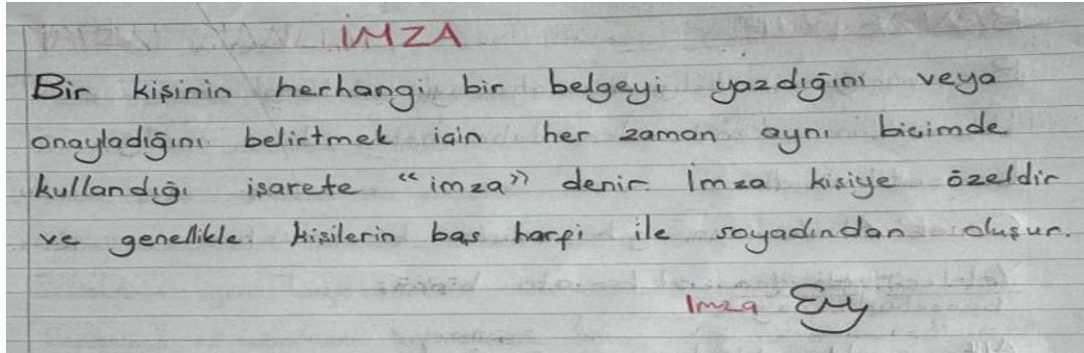 İMZA
Bir kişinin herhangi bir belgeyi yazdığını veya
onayladığını belirtmek için her zaman aynı biçimde
kullandığı işarete “imza” denir. İmza kişiye özeldir
ve genellikle kişilerin baş harfi ile soyadından oluşur.
Imza